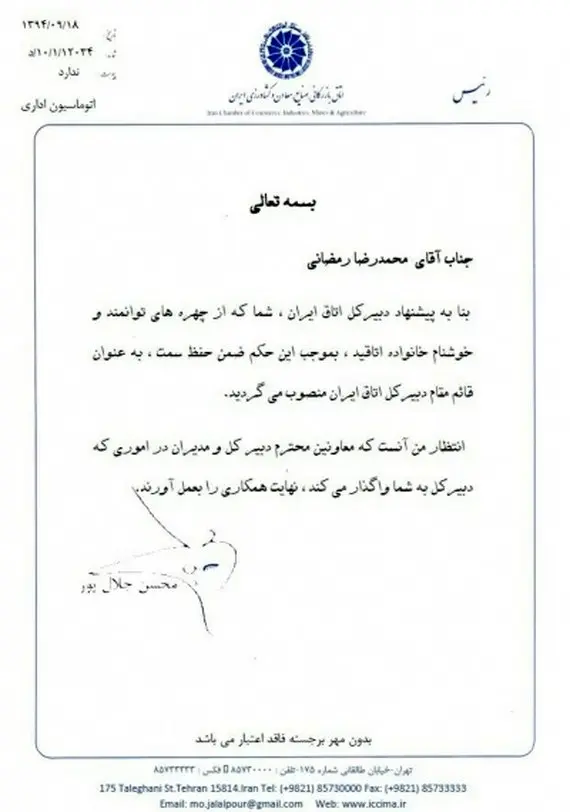 ۱۳۹۴/۰۹/۱۸
تاریخ
۱۰/۱/۱۲۰۳۴/د
شماره
ندارد
پیوست
اتوماسیون اداری
اتاق بازرگانی، صنایع، معادن و کشاورزی ایران
Iran Chamber of Commerce, Industries, Mines & Agriculture
رئیس
بسمه تعالی
جناب آقای محمدرضا رمضانی
بنا به پیشنهاد دبیرکل اتاق ایران ، شما که از چهره های توانمند و
خوشنام خانواده اتاقید ، بموجب این حکم ضمن حفظ سمت ، به عنوان
قائم مقام دبیرکل اتاق ایران منصوب می گردید.
انتظار من آنست که معاونین محترم دبیر کل و مدیران در اموری که
دبیرکل به شما واگذار می کند ، نهایت همکاری را بعمل آورند.
محسن جلال پور
بدون مهر برجسته فاقد اعتبار می باشد
تهران-خیابان طالقانی شماره ۱۷۵-تلفن : ۸۵۷۳۰۰۰۰ فکس : ۸۵۷۳۳۳۳۳
175 Taleghani St.Tehran 15814.Iran Tel: (+9821) 85730000 Fax: (+9821) 85733333
Email: mo.jalalpour@gmail.com Web: www.iccima.ir